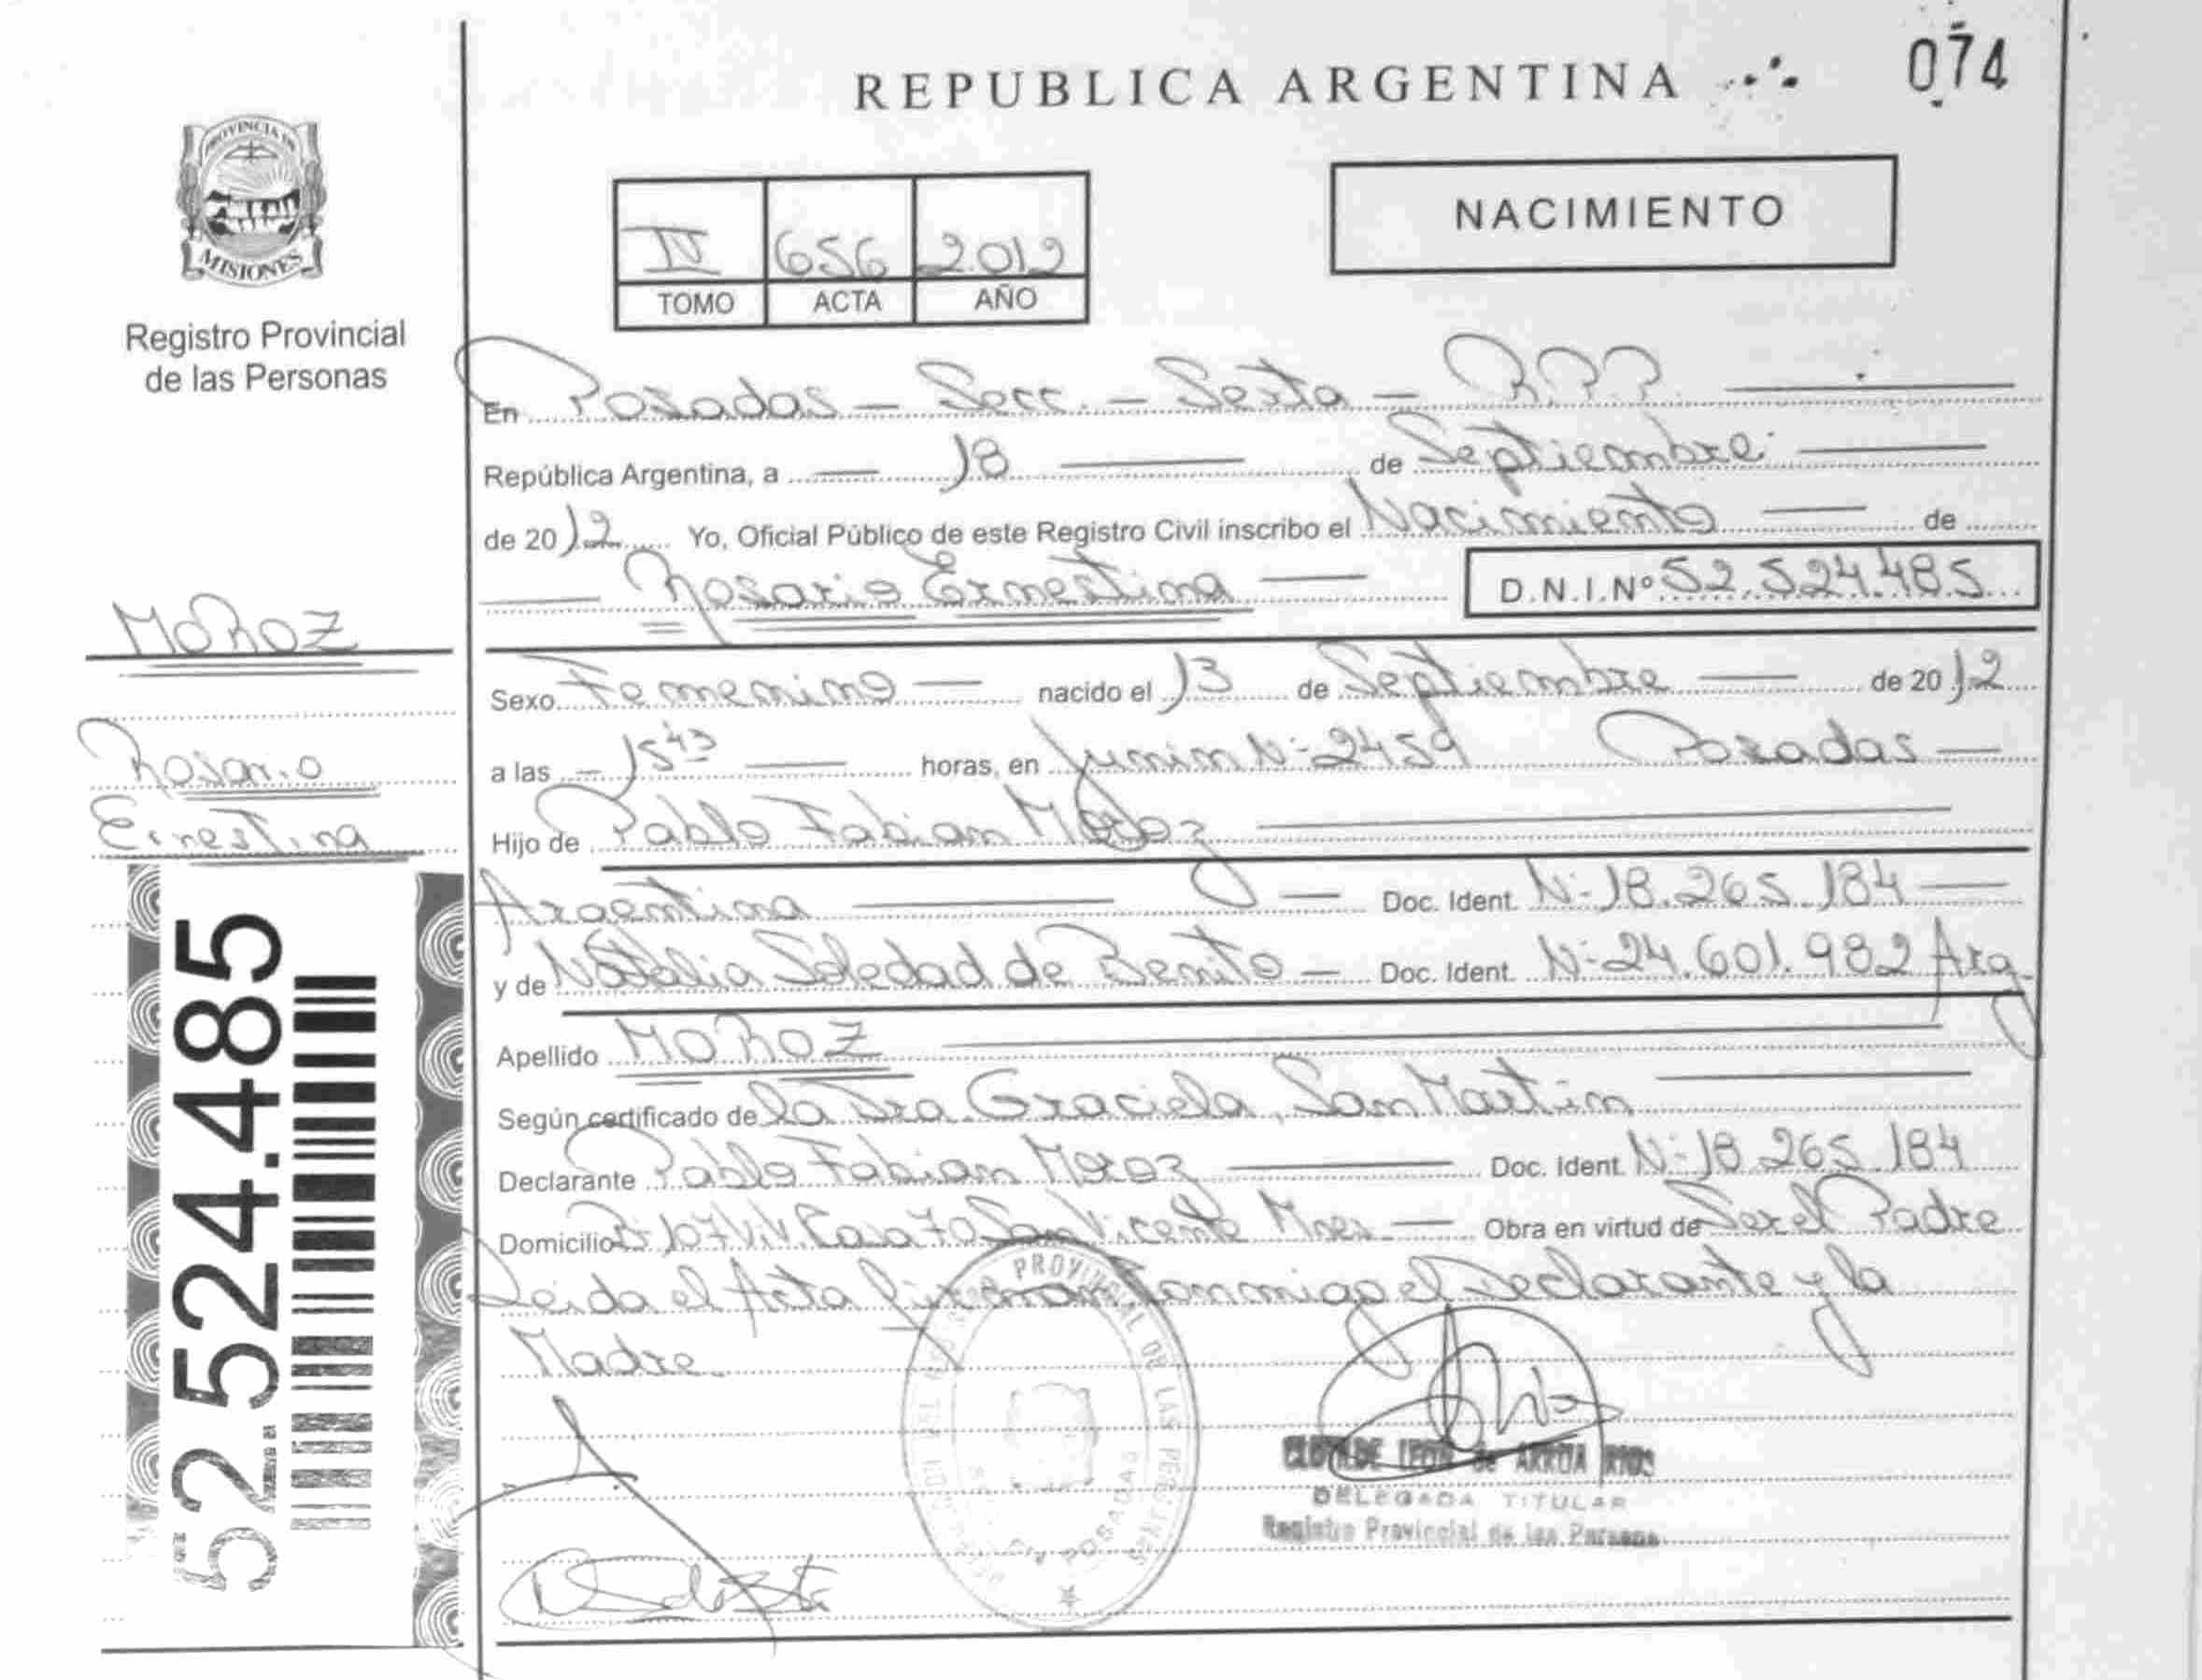 REPUBLICA ARGENTINA
074
PROVINCIA DE
MISIONES
Registro Provincial
de las Personas
IV 656 2.012
TOMO ACTA AÑO
NACIMIENTO
En Posadas — Secc. — Sexta — R.P.P.
República Argentina, a — 18 — de Septiembre —
de 2012 Yo, Oficial Público de este Registro Civil inscribo el Nacimiento — de
— Rosario Ernestina — D.N.I.Nº 52.524.485
MOROZ
Rosario
Ernestina
52.524.485
Sexo Femenino — nacido el 13 de Septiembre — de 2012
a las — 15 43 — horas, en Junin N: 2459 Posadas —
Hijo de Pablo Fabian Moroz
Argentina — Doc. Ident. N: 18.265.184 —
y de Natalia Soledad de Benito — Doc. Ident. N: 24.601.982 Arg.
Apellido MOROZ
Según certificado de la Dra. Graciela San Martin
Declarante Pablo Fabian Moroz — Doc. Ident. N: 18.265.184
Domicilio 107 Viv. Casa 70 San Vicente Mnes — Obra en virtud de Ser el Padre
Leida el Acta firman conmigo el Declarante y la
Madre.
PROVINCIAL DE LAS PERSONAS
POSADAS
CLOTILDE LEON de ARRUA RIOS
DELEGADA TITULAR
Registro Provincial de las Personas